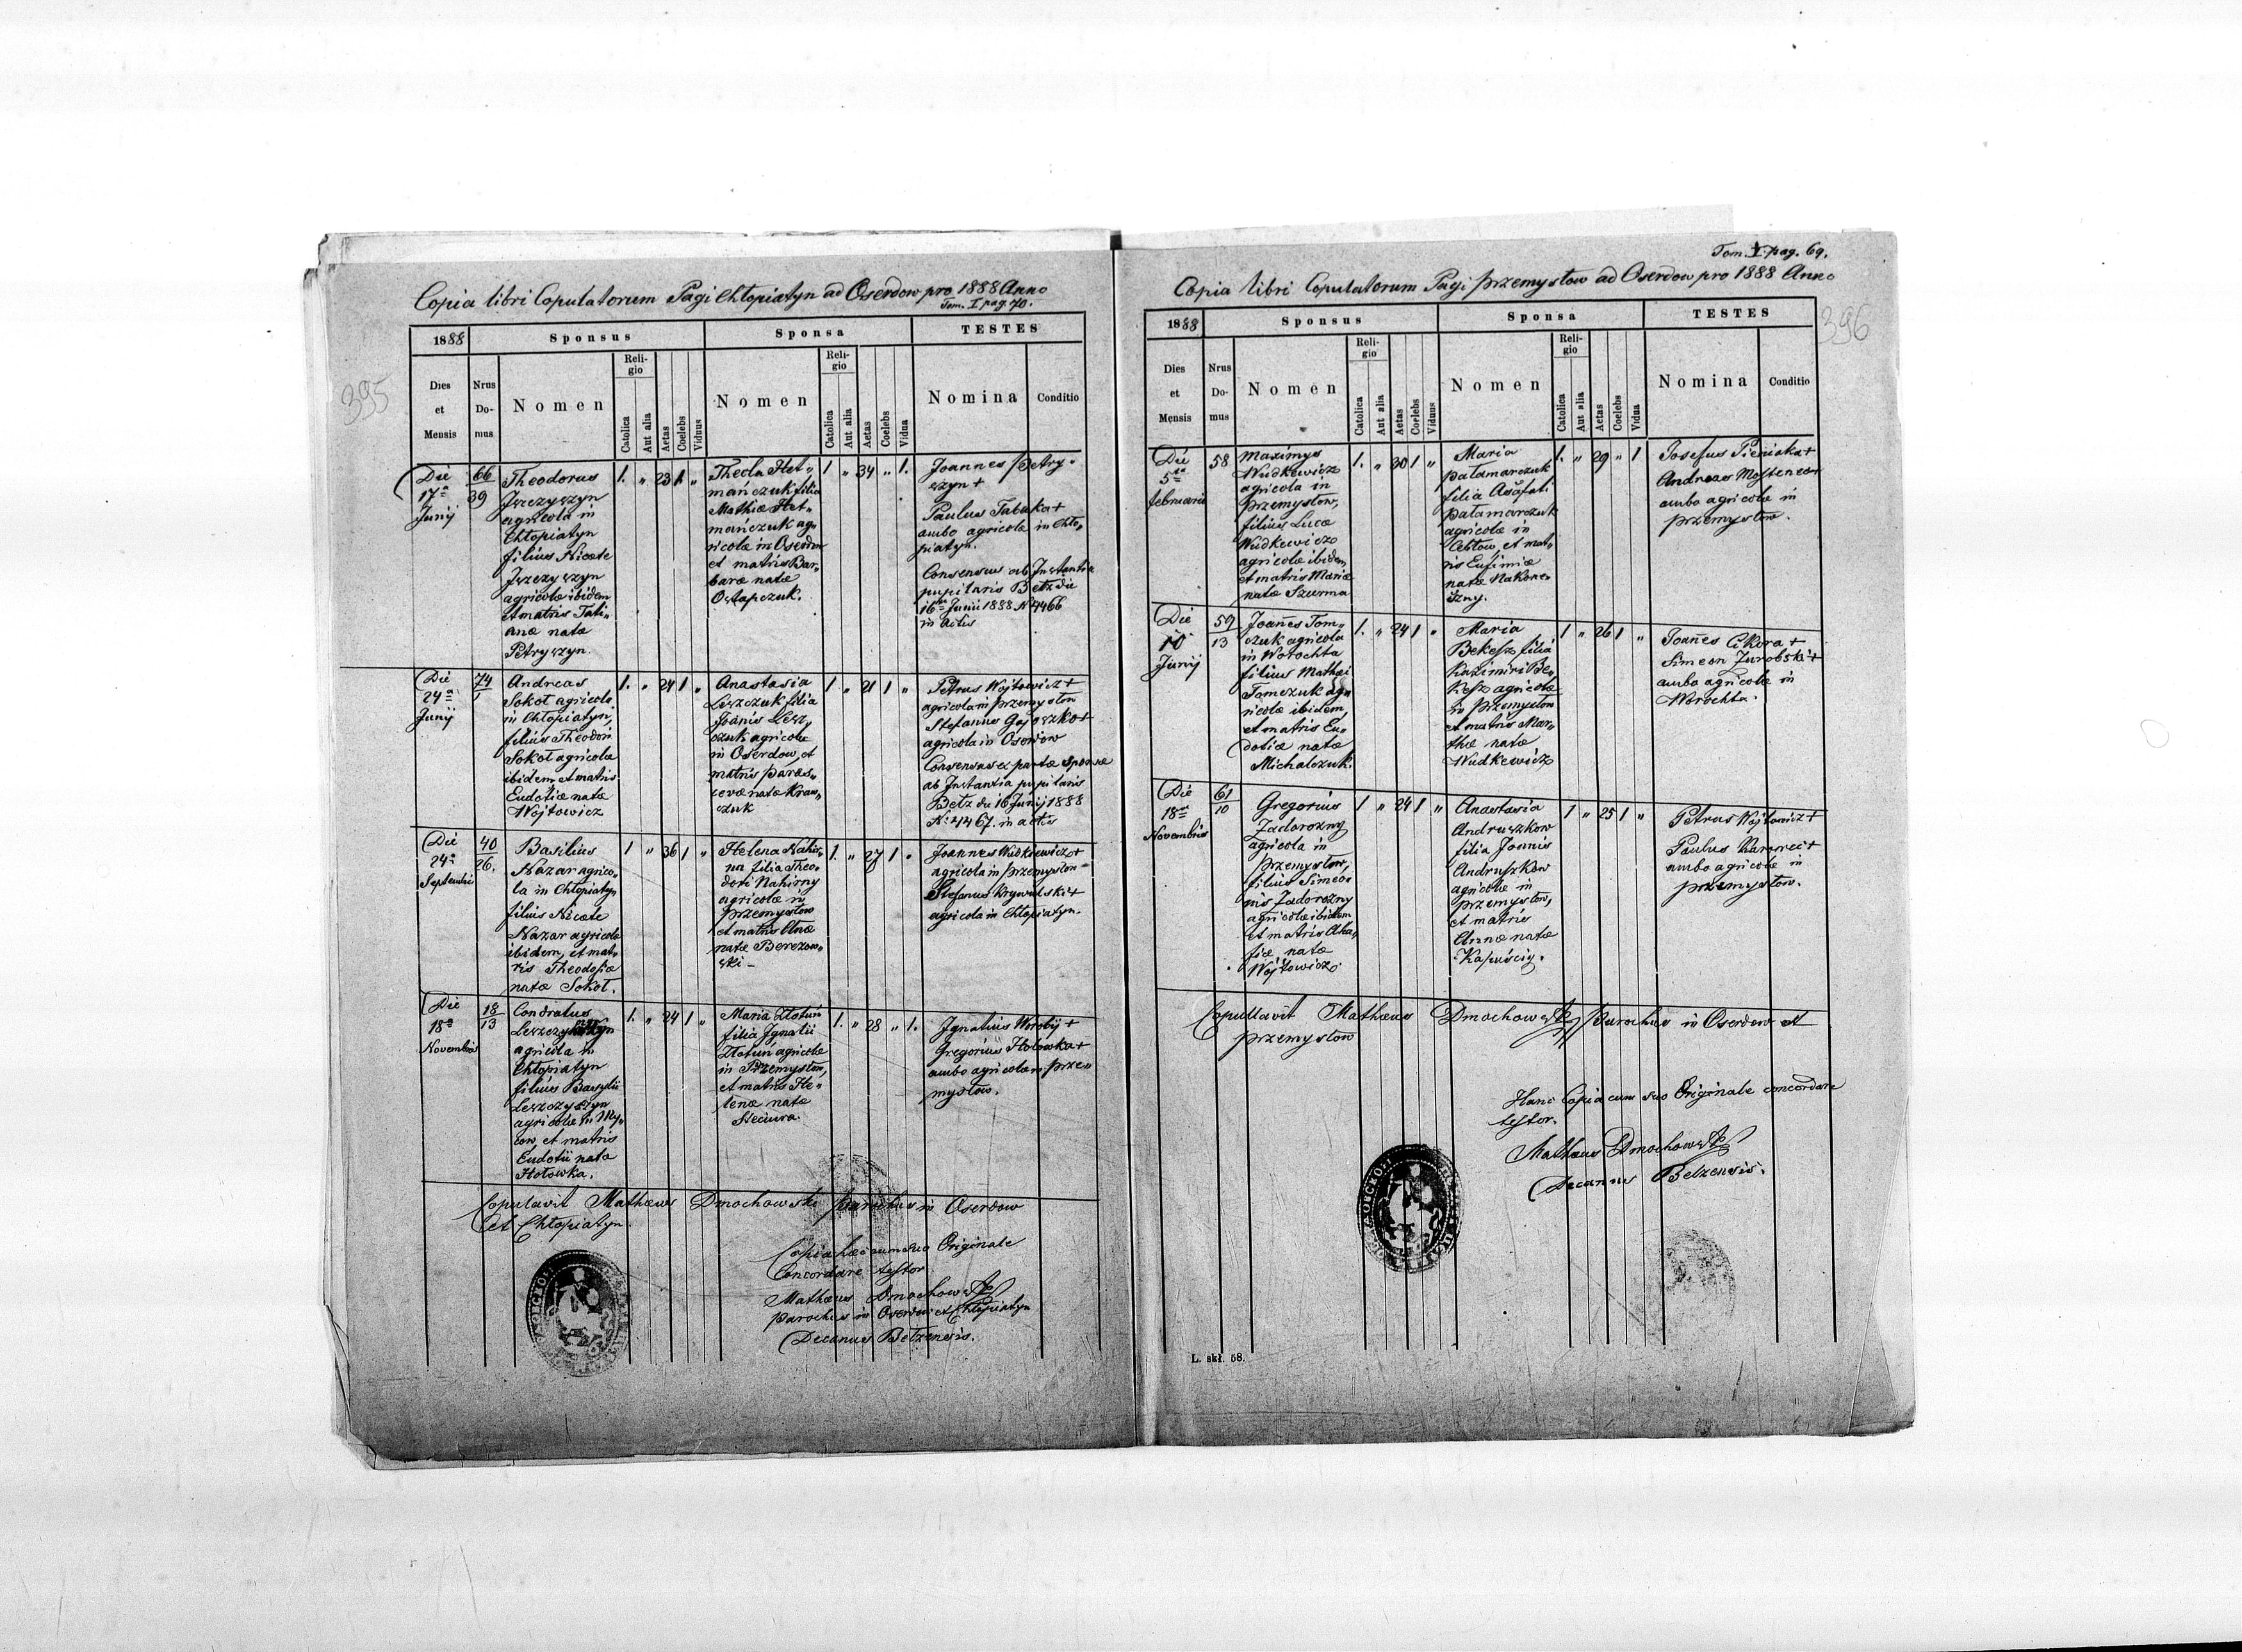 Copia libri Copulatorum Pagi Chłopiatyn ad Oserdow pro 1888 Anno
Tom. I pag. 70.
395
1888 Sponsus Sponsa TESTES
Dies et Mensis
Nrus Do- mus
Nomen
Reli- gio
Catolica
Aut alia
Aetas
Coelebs
Viduus
Nomen
Reli- gio
Catolica
Aut alia
Aetas
Coelebs
Vidua
Nomina
Conditio
Die
17a
Junij
66
39
Theodorus
agricola in
Chłopiatyn
filius Nicetae
agricolae ibidem
et matris Tati„
anae natae
Petryszyn.
1. „ 23 1. „
Thecla Het„
mańczuk filia
Mathiae Het„
mańczuk ag„
ricolae in Oserdow
et matris Bar„
barae natae
Ostapczuk.
1 „ 34 „ 1.
Joannes Petry„
szyn +
Paulus Tabuka +
ambo agricolae in Chło„
piatyn.
Consensus ab Instantia
pupilaris Bełz die
16a Junii 1888 N 4466
in actis
Die
24a
Junij
74
1
Andreas
Sokoł agricola
in Chłopiatyn,
filius Theodori
Sokoł agricolae
ibidem et matris
Eudotiae natae
Wojtowicz
1. „ 24 1 „
Anastasia
Leszczuk filia
Joanis Lesz„
czuk agricolae
in Oserdow, et
matris Paras„
cevae natae Kraw„
czuk
1 „ 21 1 „
Petrus Wojtowicz +
agricola in Przemysłow
Stefanus Gajoszko +
agricola in Oserdow
Consensus ex parte Sponsae
ab Instantia pupilaris
Bełz die 16 Junij 1888
N: 4467. in actis
Die
24a
Septembris
40
26.
Basilius
Nazar agrico„
la in Chłopiatyn
filius Nicetae
Nazar agricolae
ibidem, et mat„
ris Theodosiae
natae Sokoł.
1 „ 36 1 „
Helena Nahir„
na filia Theo„
dori Nahirny
agricolae in
Przemysłow
et matris Anae
natae Berezow„
ski -
1. „ 27 1 „
Joannes Wudkiewicz +
agricola in Przemysłow
Stefanus Krywulski +
agricola in Chłopiatyn.
Die
18a
Novembris
18
13
Condratus
agricola in
Chłopiatyn
filius Basylii
Leszczyszyn
agricolae in My„
cow, et matris
Eudotii nata
Hołowka.
1. „ 24 1 „
Maria Złotuń
filia Ignatii
Złotuń agricolae
in Przemysłow,
et matris He„
lenae natae
Steciura.
1. „ 28 „ 1.
Ignatius Worobij +
Gregorius Hołowka +
ambo agricolae in Prze„
mysłow.
Copulavit Mathaeus Dmochowski parochus in Oserdow
et Chłopiatyn.
Copia haec cum suo Originale
Concordare testor
Mathaeus Dmochowski
parochus in Oserdow et Chłopiatyn
Decanus Bełzensis.
Tom. I. pag. 69.
Copia libri Copulatorum Pagi Przemysłow ad Oserdow pro 1888 Anno
396
1888 Sponsus Sponsa TESTES
Dies et Mensis
Nrus Do- mus
Nomen
Reli- gio
Catolica
Aut alia
Aetas
Coelebs
Viduus
Nomen
Reli- gio
Catolica
Aut alia
Aetas
Coelebs
Vidua
Nomina
Conditio
Die
5ta
februarii
58
Maximus
Wudkewicz
agricola in
Przemysłow,
filius Lucae
Wudkewicz
agricolae ibidem
et matris Mariae
natae Szurma
1. „ 30 1 „
Maria
Pałamarczuk
filia Asafati
Pałamarczuk
agricolae in
Cebłow, et mat„
ris Eufimiae
natae Nakone„
szny.
1. „ 29 „ 1
Josefus Pieniaka +
Andreas
ambo agricolae in
Przemysłow.
Die
10
Junij
59
13
Joannes Tom„
czuk agricola
in Worochta
filius Mathei
Tomczuk ag„
ricolae ibidem,
et matris Eu„
dotiae natae
Michalczuk.
1. „ 24 1 „
Maria
Bekesz filia
Kazimiri Be„
kesz agricolae
in Przemysłow
et matris Mar„
thae natae
Wudkewicz
1 „ 26 1 „
Joannes Cikora +
Simeon +
ambo agricolae in
Worochta.
Die
18a
Novembris
61
10
Gregorius
Zadorozny
agricola in
Przemysłow,
filius Simeo„
nis Zadorozny
agricolae ibidem
et matris Aha„
fiae, natae
Wojtowicz.
1 „ 24 1 „
Anastasia
Andruszkow
filia Joannis
Andruszkow
agricolae in
Przemysłow,
et matris
Annae natae
Kapuściy.
1 „ 25 1 „
Petrus Wojtowicz +
Paulus +
ambo agricolae in
Przemysłow.
Copulavit Mathaeus Dmochowski parochus in Oserdow et
Przemysłow
Hanc Copia cum suo Originale concordare
testor.
Mathaeus Dmochowski
Decanus Bełzensis.
L. skł. 58.